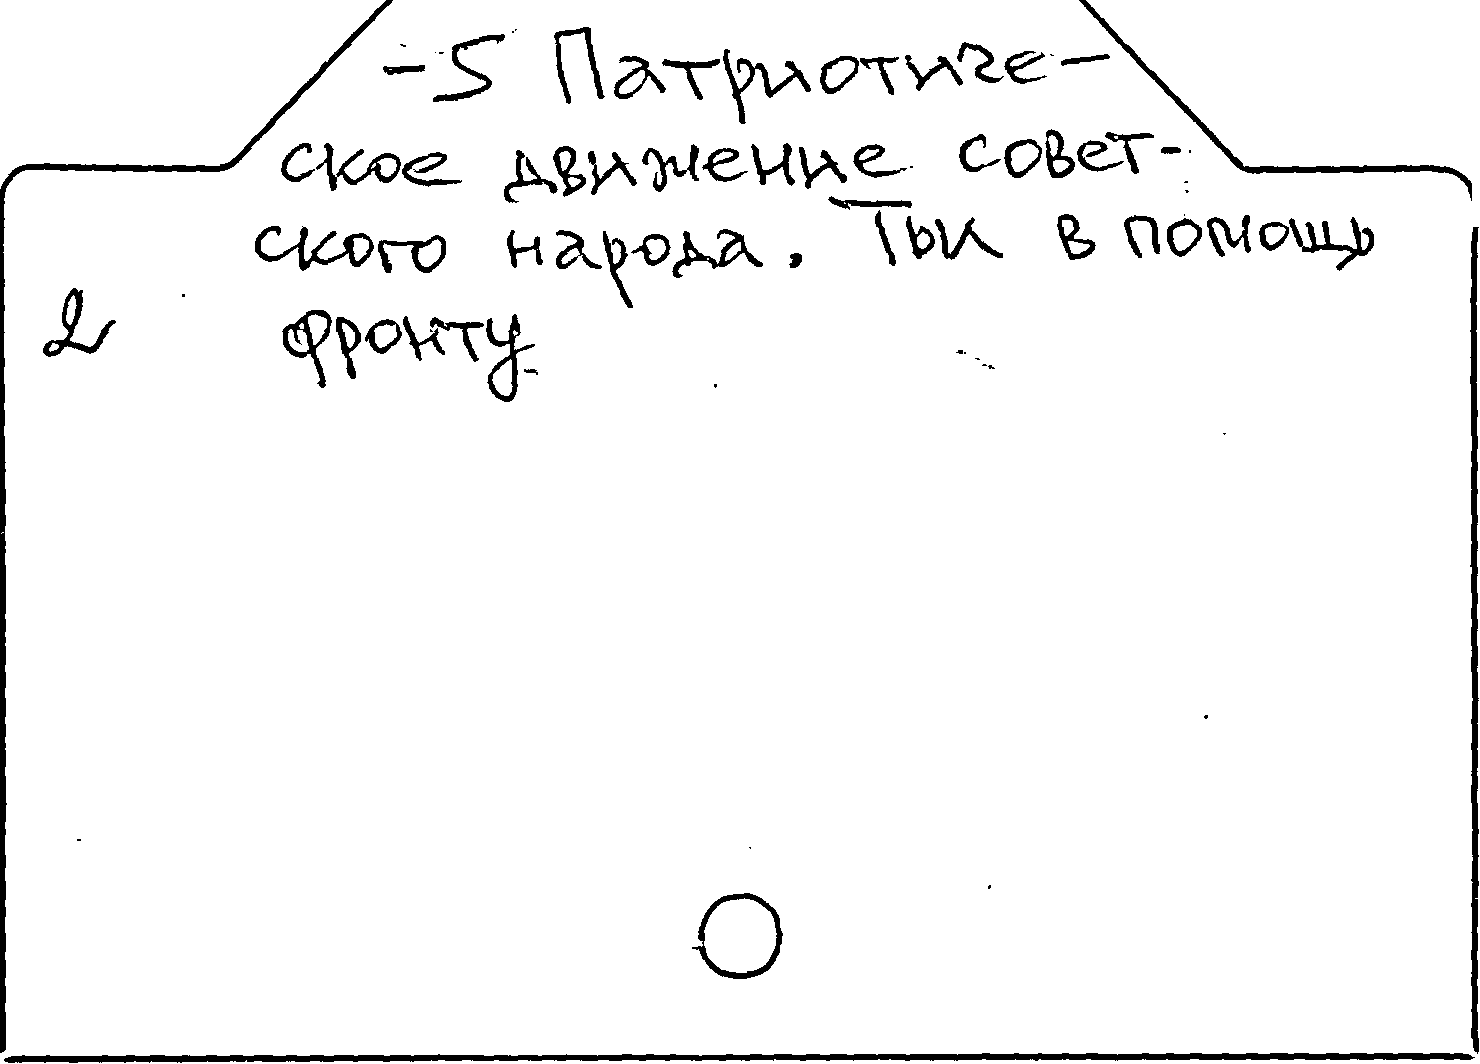 -5 Патриотиче-
ское движение совет-
ского народа. Тыл в помощь
2 фронту